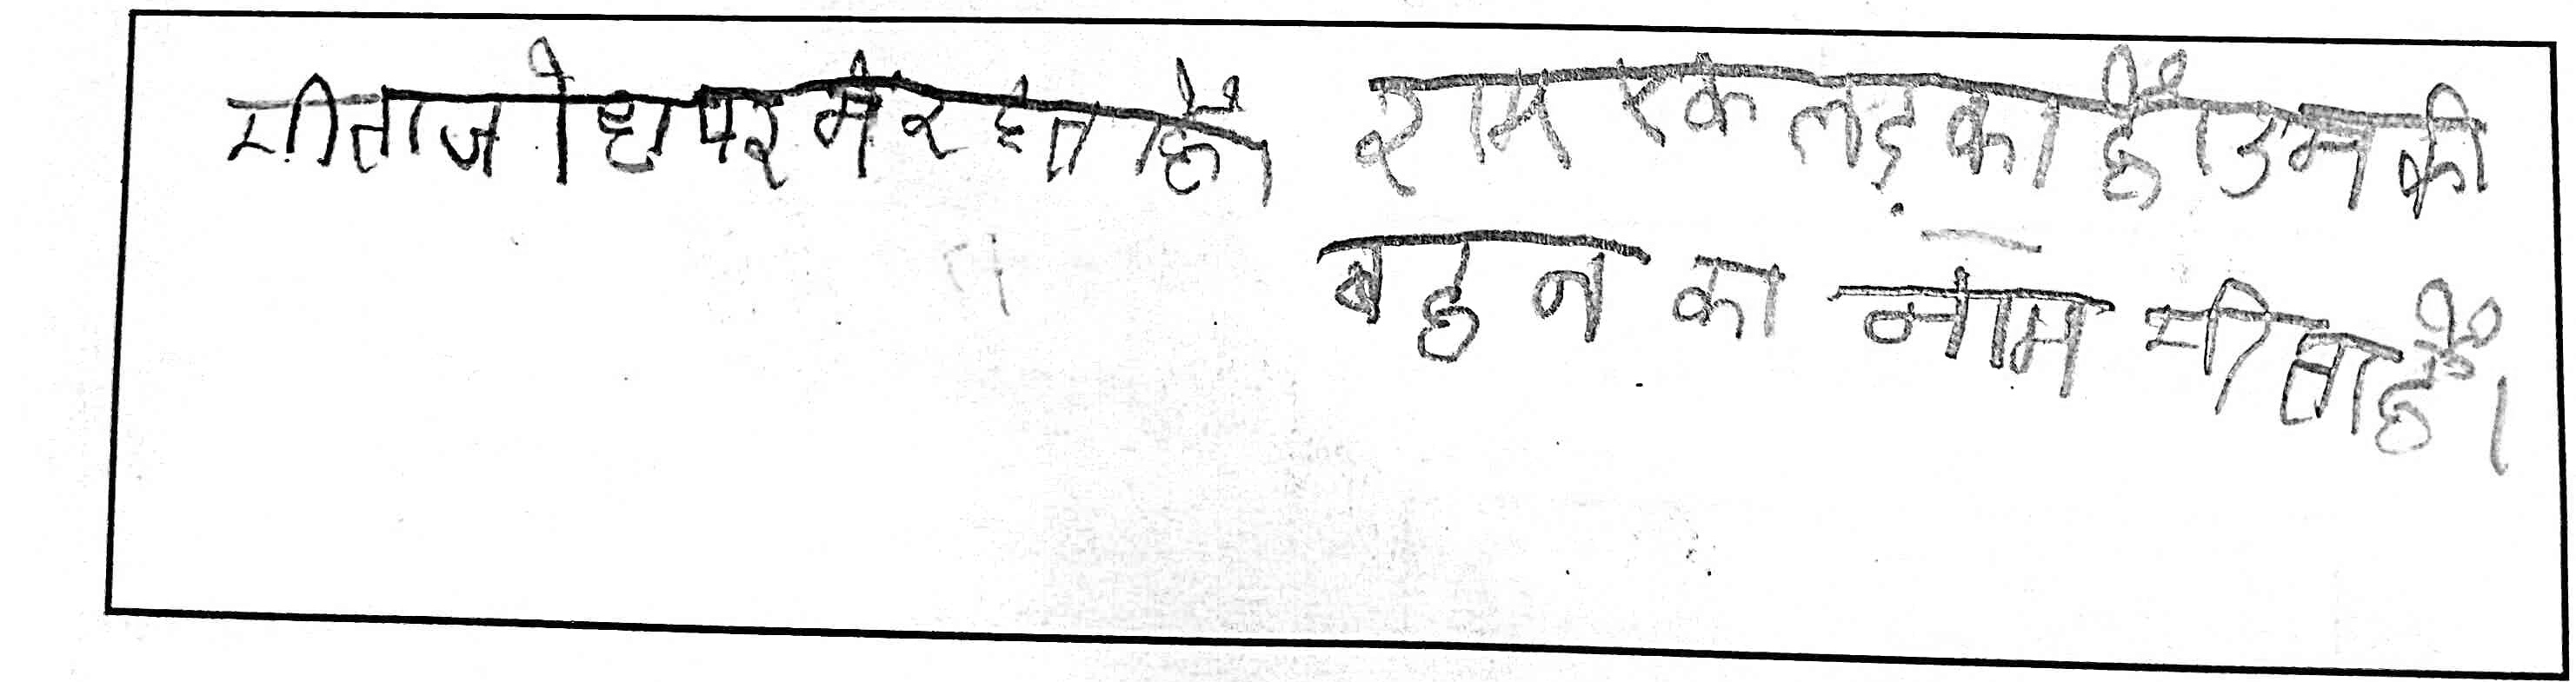 मीता जोधपुर में रहता है। राम एक लड़का है। उसकी
बहन का नाम मीता है।